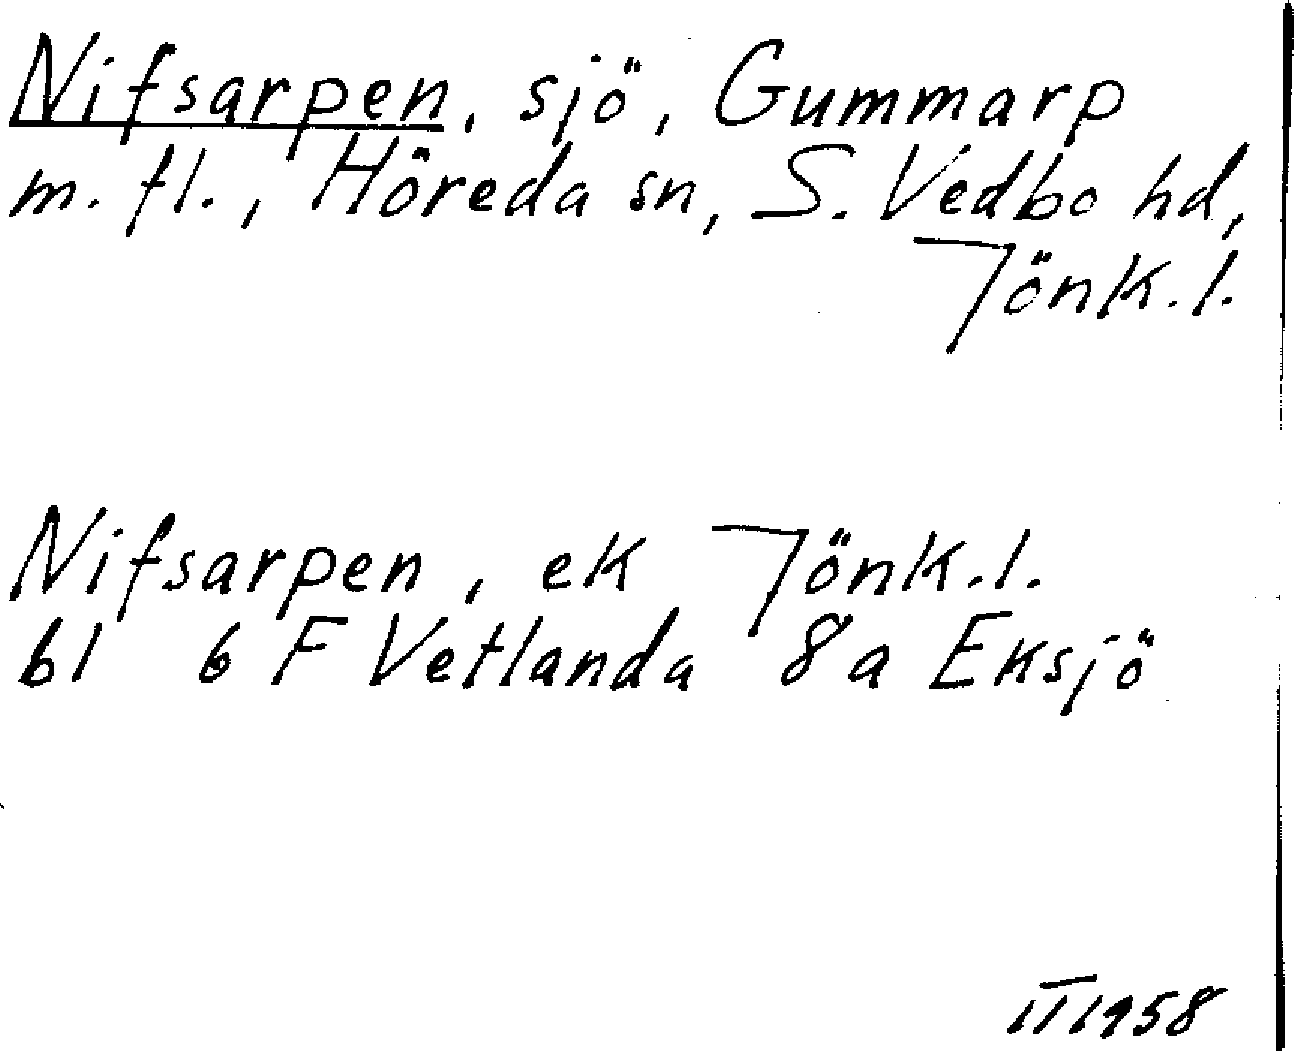 Nifsarpen, sjö, Gummarp
m. fl., Höreda sn, S. Vedbo hd,
Jönk. l.
Nifsarpen, ek Jönk. l.
bl 6 F Vetlanda 8a Eksjö
II 1958